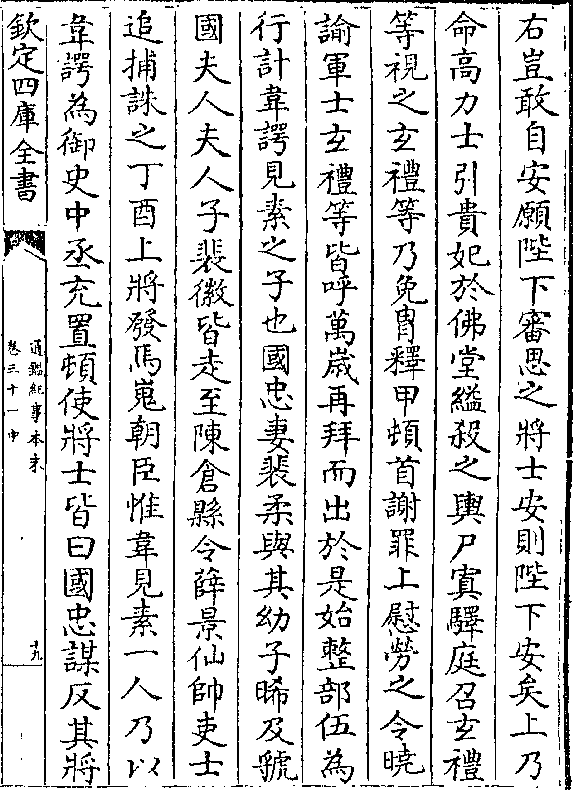 右豈敢自安願陛下審思之將士安則陛下安矣上乃
命高力士引貴妃於佛堂縊殺之輿尸寘驛庭召玄禮
等視之玄禮等乃免胄釋甲頓首謝罪上慰勞之令曉
諭軍士玄禮等皆呼萬歲再拜而出於是始整部伍為
行計韋諤見素之子也國忠妻裴柔與其幼子晞及虢
國夫人夫人子裴徽皆走至陳倉縣令薛景仙帥吏士
追捕誅之丁酉上將發馬嵬朝臣惟韋見素一人乃以
韋諤為御史中丞充置頓使將士皆曰國忠謀反其將
欽定四庫全書
通鑑紀事本末
卷三十一中
十九